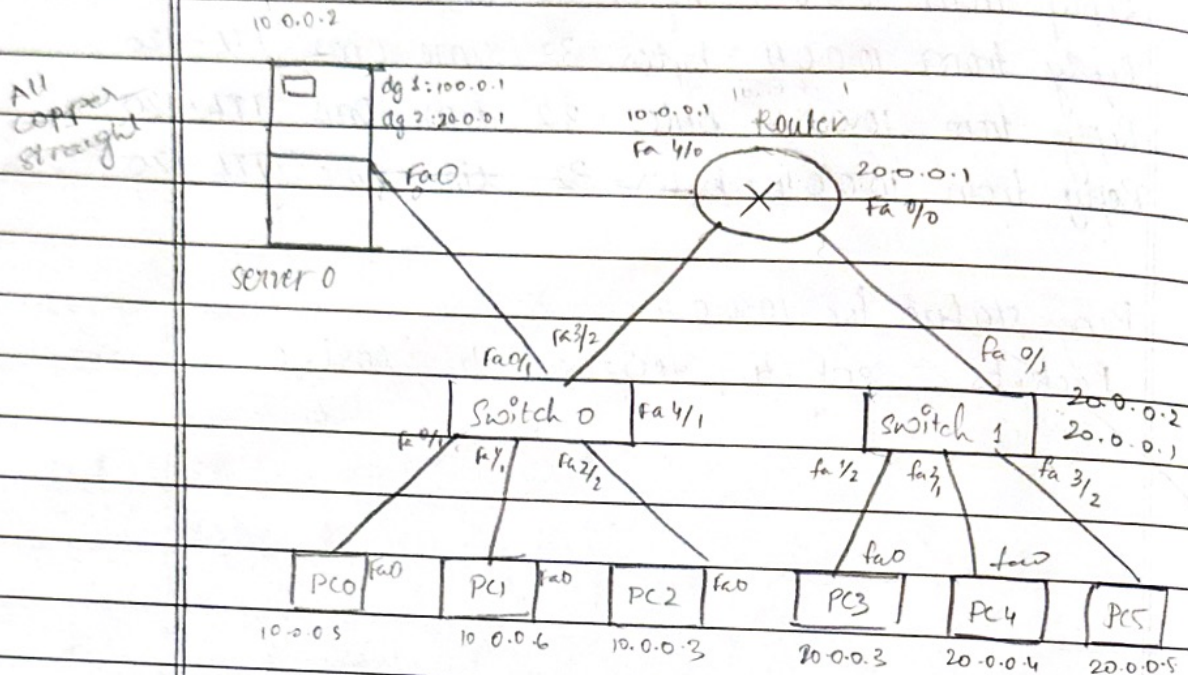 10.0.0.2
All
copper
straight
dg 1:100.0.1
dg 2:20.0.01
Fa0
10.0.0.1
Fa 4/0
Router
20.0.0.1
Fa 0/0
server 0
Fa0/1
Fa3/2
Switch 0
Fa4/1
fa 0/1
switch 1
20.0.0.2
20.0.0.1
fa 0/1
fa 1/1
Fa2/2
fa 1/2
fa 2/1
fa 3/2
PC0
Fa0
PC1
Fa0
PC2
Fa0
fa0
PC3
fa0
PC4
PC5
10.0.0.5
10.0.0.6
10.0.0.3
20.0.0.3
20.0.0.4
20.0.0.5